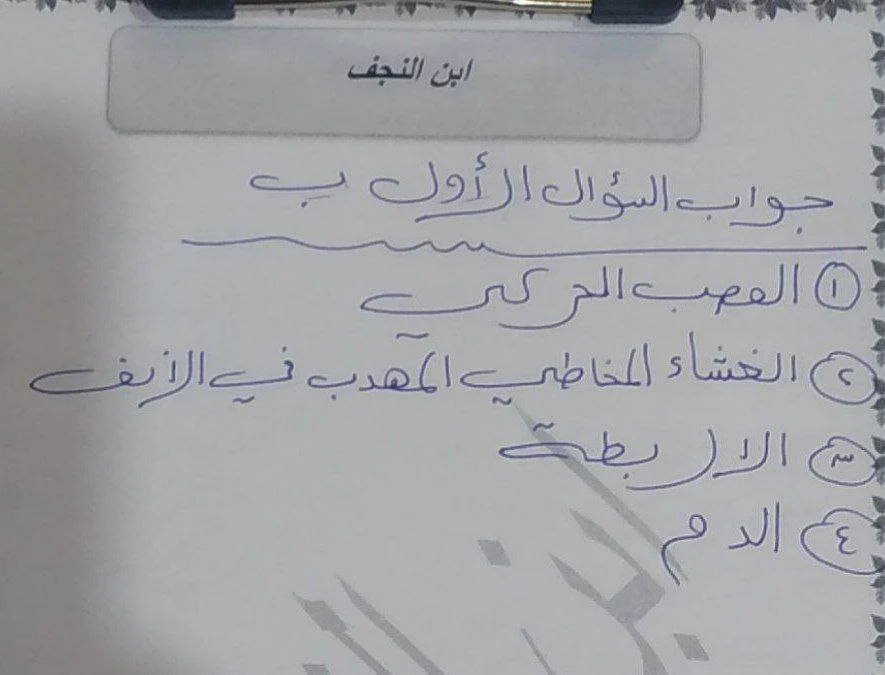 ابن النجف
جواب السؤال الأول ب
١ العصب الحركي
٢ الغشاء المخاطي المهدب في الأنف
٣ الاربطة
٤ الدم
ابن